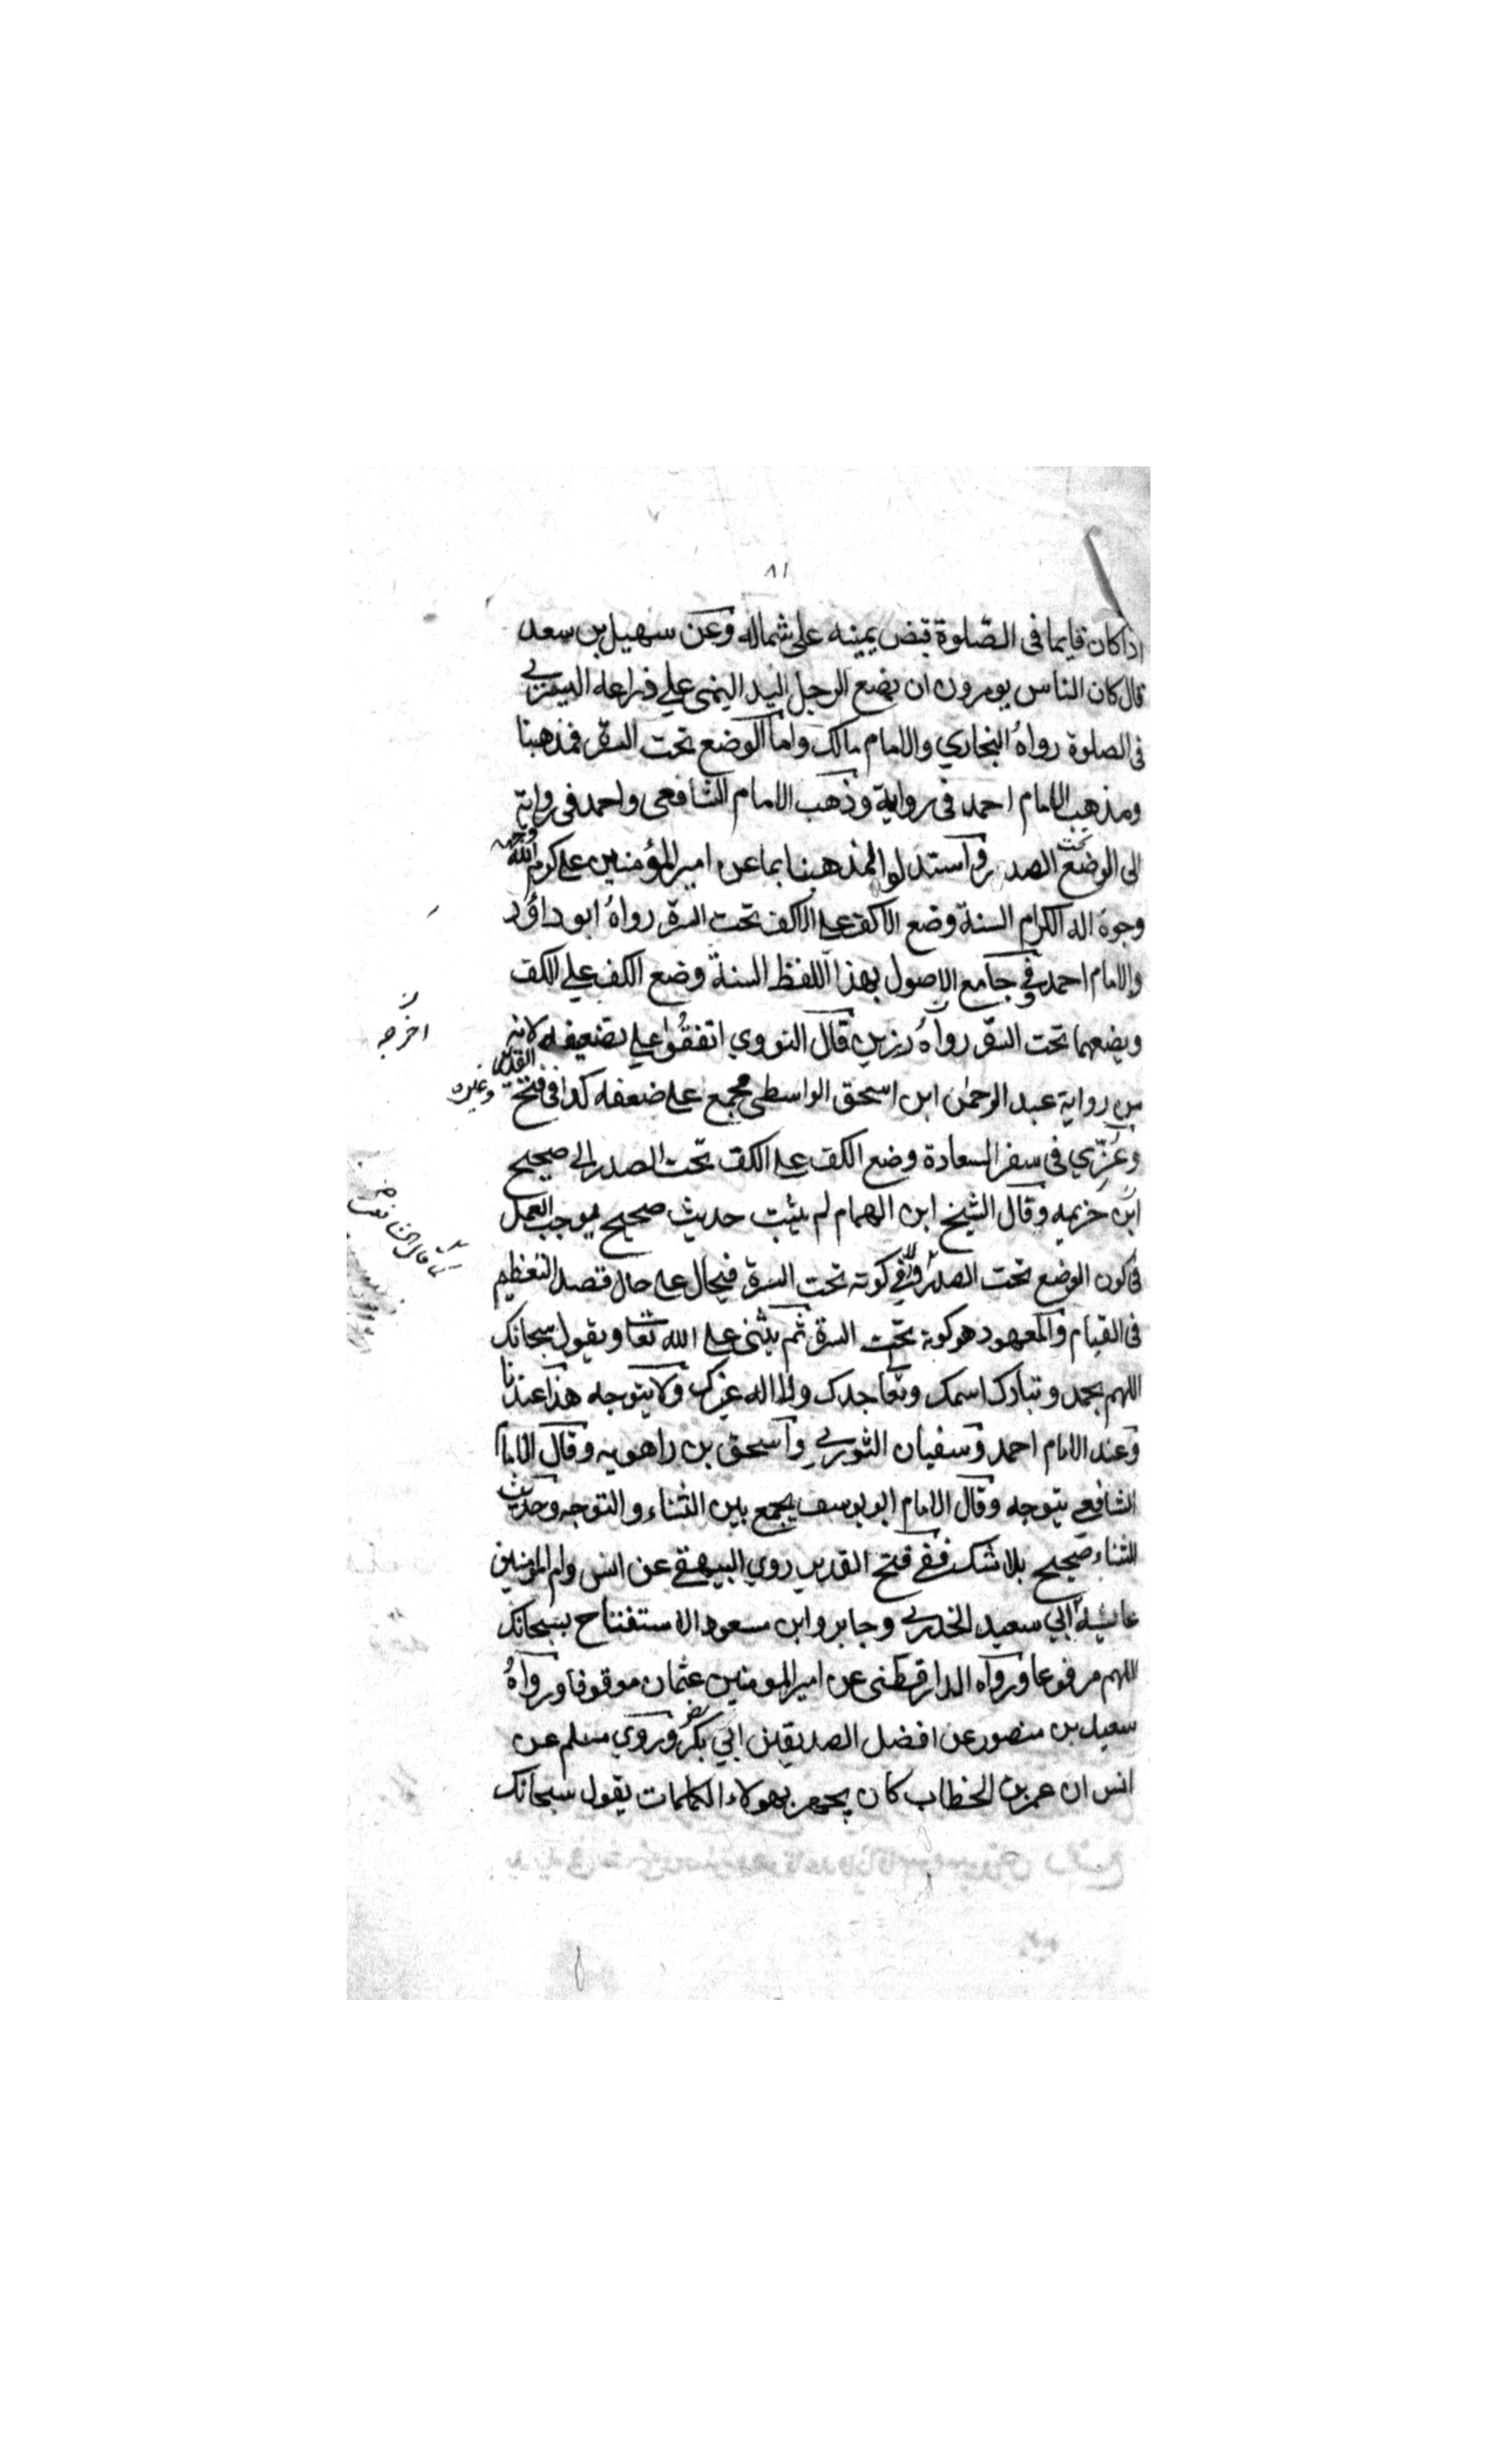 ٨١
اذا كان قايما فى الصّلوة قبض يمينه على شماله وعن سهيل بن سعد
قال كان الناس يومرون ان يضع الرجل اليد اليمنى علي ذراعه اليسرى
فى الصلوة رواهُ البخاري والامام مالك واما الوضع تحت السرة فمذهبنا
ومذهب الامام احمد فى رواية وذهب الامام الشافعى واحمد فى رواية
الى الوضع تحت الصدر واستدلوا لمذهبنا بما عن امير المؤمنين على كرم الله وجهه
وجوه اله الكرام السنة وضع الاكف على الاكف تحت السرة رواهُ ابو داؤد
والامام احمد وفي جامع الاصول بهذا اللفظ السنة وضع الكف علي الكف
ويضعهما تحت السرة رواهُ رزين قال النووي اتفقُوا علي تضعيفه لانه
من رواية عبد الرحمٰن ابن اسحق الواسطى مجمع على ضعفه كذا فى فتح القدير وغيره
وعُزّي فى سفر السعادة وضع الكف على الكف تحت الصدر الى صحيح
ابن خزيمه وقال الشيخ ابن الهمام لم يثبت حديث صحيح يوجب العمل
فى كون الوضع تحت الصدر وفي كونه تحت السرة فيحال على حال قصد التعظيم
فى القيام والمعهود هو كونه تحت السرة ثم يثنى على الله تعا ويقول سبحانك
اللهم بحمد وتبارك اسمك وتعا جدك ولا اله غيرك ولا يتوجه هذا عندنا
وعند الامام احمد وسفيان الثوري واسحق بن راهويه وقال الاما
الشافعي يتوجه وقال الامام ابو يوسف يجمع بين الثناء والتوجه وحديث
الثناء صحيح بلا شك ففي فتح القدير روي البيهقي عن انس وام المومنين
عائشة ابي سعيد الخدري وجابر وابن مسعود الاستفتاح بسبحانك
اللهم مرفوعا ورواه الدارقطنى عن امير المومنين عثمان موقوفا ورواهُ
سعيد بن منصور عن افضل الصديقين ابي بكر وروي مسلم عن
انس ان عمر بن الخطاب كان يجهر بهولاء الكلمات يقول سبحانك
اخرجه